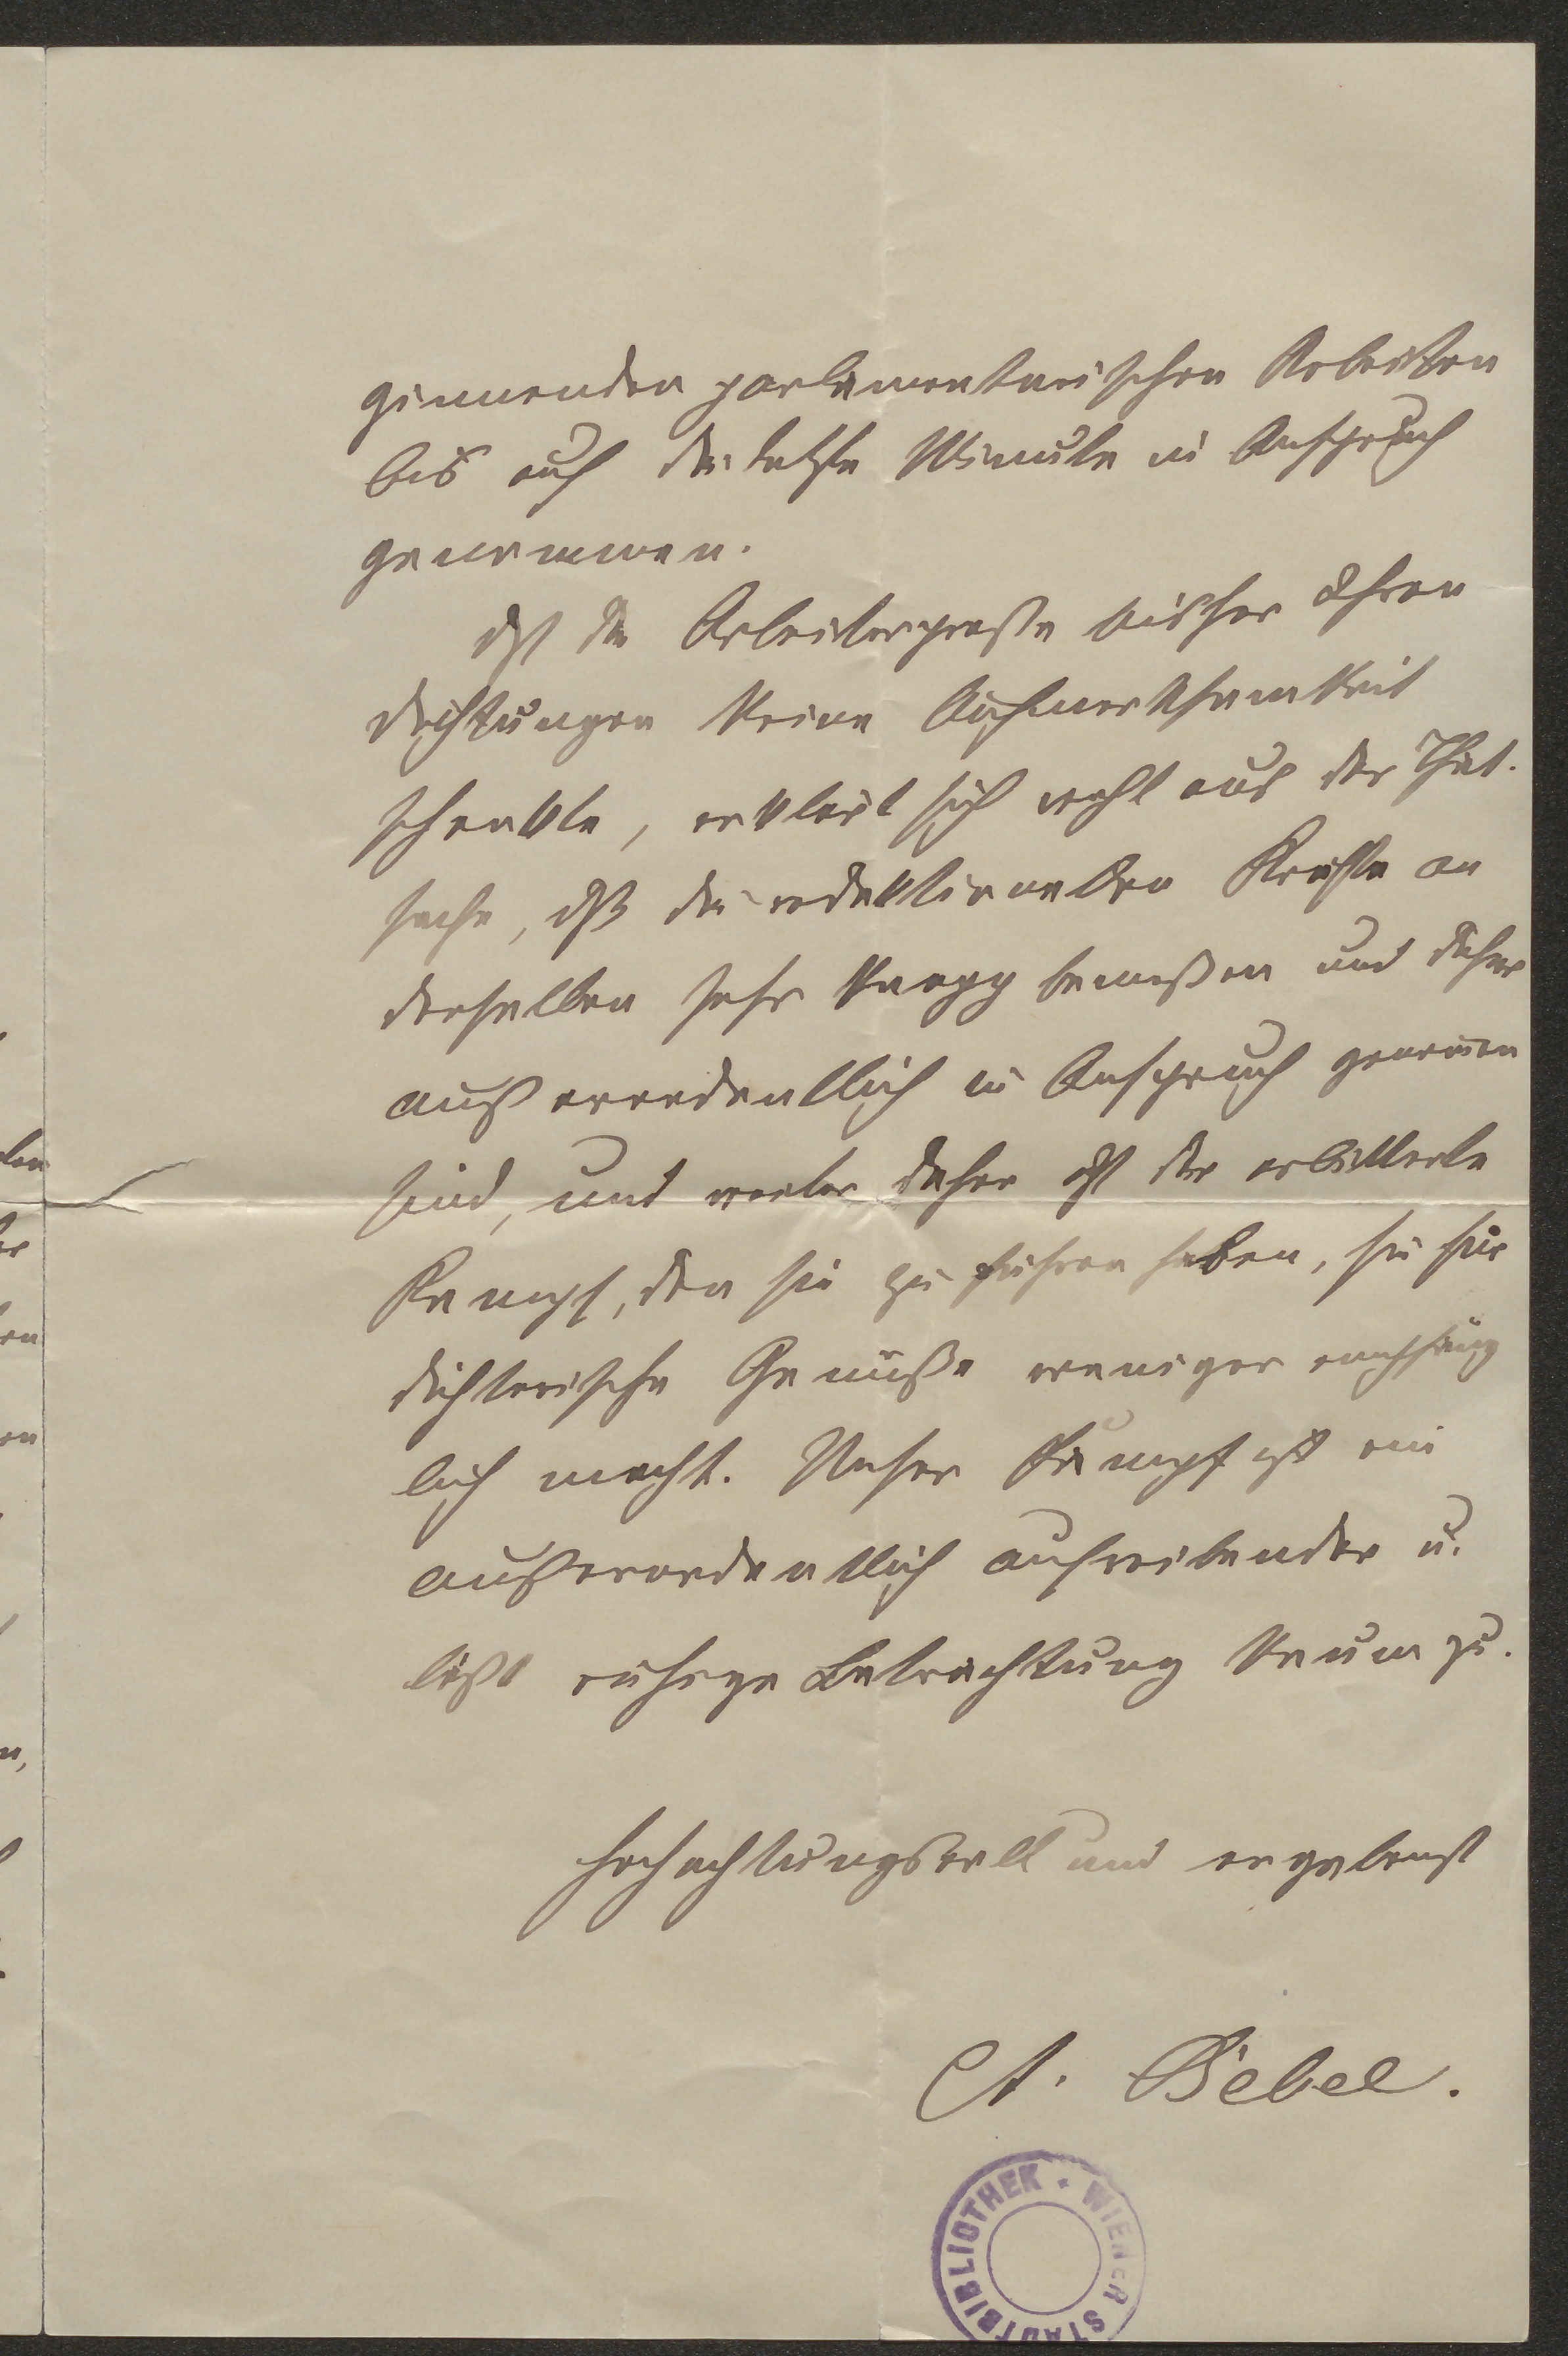 ginnenden parlamentarischen Arbeiten
bis auf die letzte Minute in Anspruch
genommen.
Daß die Arbeiterpresse bisher Ihren
Dichtungen keine Aufmerksamkeit
schenkte, erklärt sich wohl aus der That-
sache, daß die redaktionellen Kräfte an
derselben sehr knapp bemeßen und daher
außerordentlich in Anspruch genommen
sind, und weiter daher daß der erbitterte
Kampf, den sie zu führen haben, sie für
dichterische Genüße weniger empfäng
lich macht. Unser Kampf ist ein
außerordentlich aufreibender u.
läßt ruhige Betrachtung kaum zu.
Hochachtungsvoll und ergebenst
A. Bebel.
WIENER STADTBIBLIOTHEK